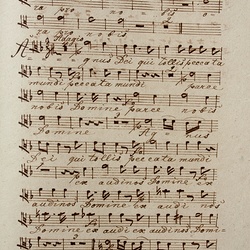 ra pro no
ra pro nobis
Adagio
Agnus Dei qui tollis peccata
mundi peccata mundi parce
nobis Domine parce nobis
Domine Agnus
Dei qui tollis peccata mundi
ex audi nos Domine ex
audi nos Domine
Domine ex audi ex audi nos Domi